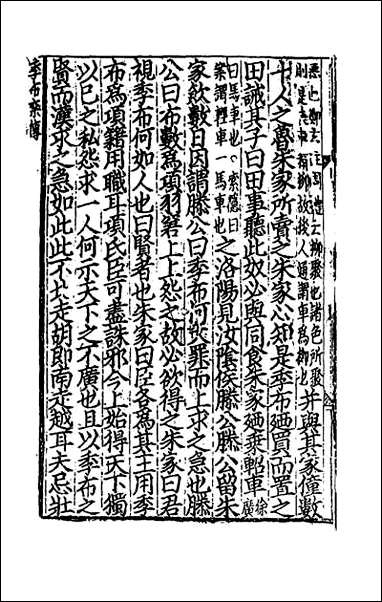 悉也鄭玄注周禮云柳聚也諸色所聚
則是喪車稱柳故後人通謂車為柳也
并與其家僮數
十人之魯朱家所賣之朱家心知是季布廼買而置之
田誡其子曰田事聽此奴必與同食朱家廼乘軺車徐廣
曰馬車也 索隱曰
案謂輕車一馬車也
之洛陽見汝陰侯滕公滕公留朱
家飲數日因謂滕公曰季布何罪而上求之急也滕
公曰布數爲項羽窘上上怨之故必欲得之朱家曰君
視季布何如人也曰賢者也朱家曰臣各爲其主用季
布爲項籍用職耳項氏臣可盡誅邪今上始得天下獨
以己之私怨求一人何示天下之不廣也且以季布之
賢而漢求之急如此此不北走胡即南走越耳夫忌壯
季布欒傳